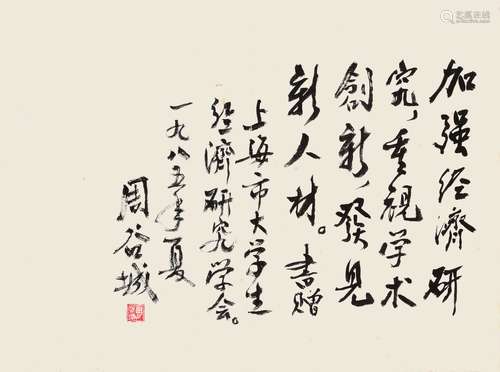 加强经濟研
究，重视学术
創新，發見
新人材。書赠
上海市大学生
经濟研究学会。
一九八五年夏
周谷城